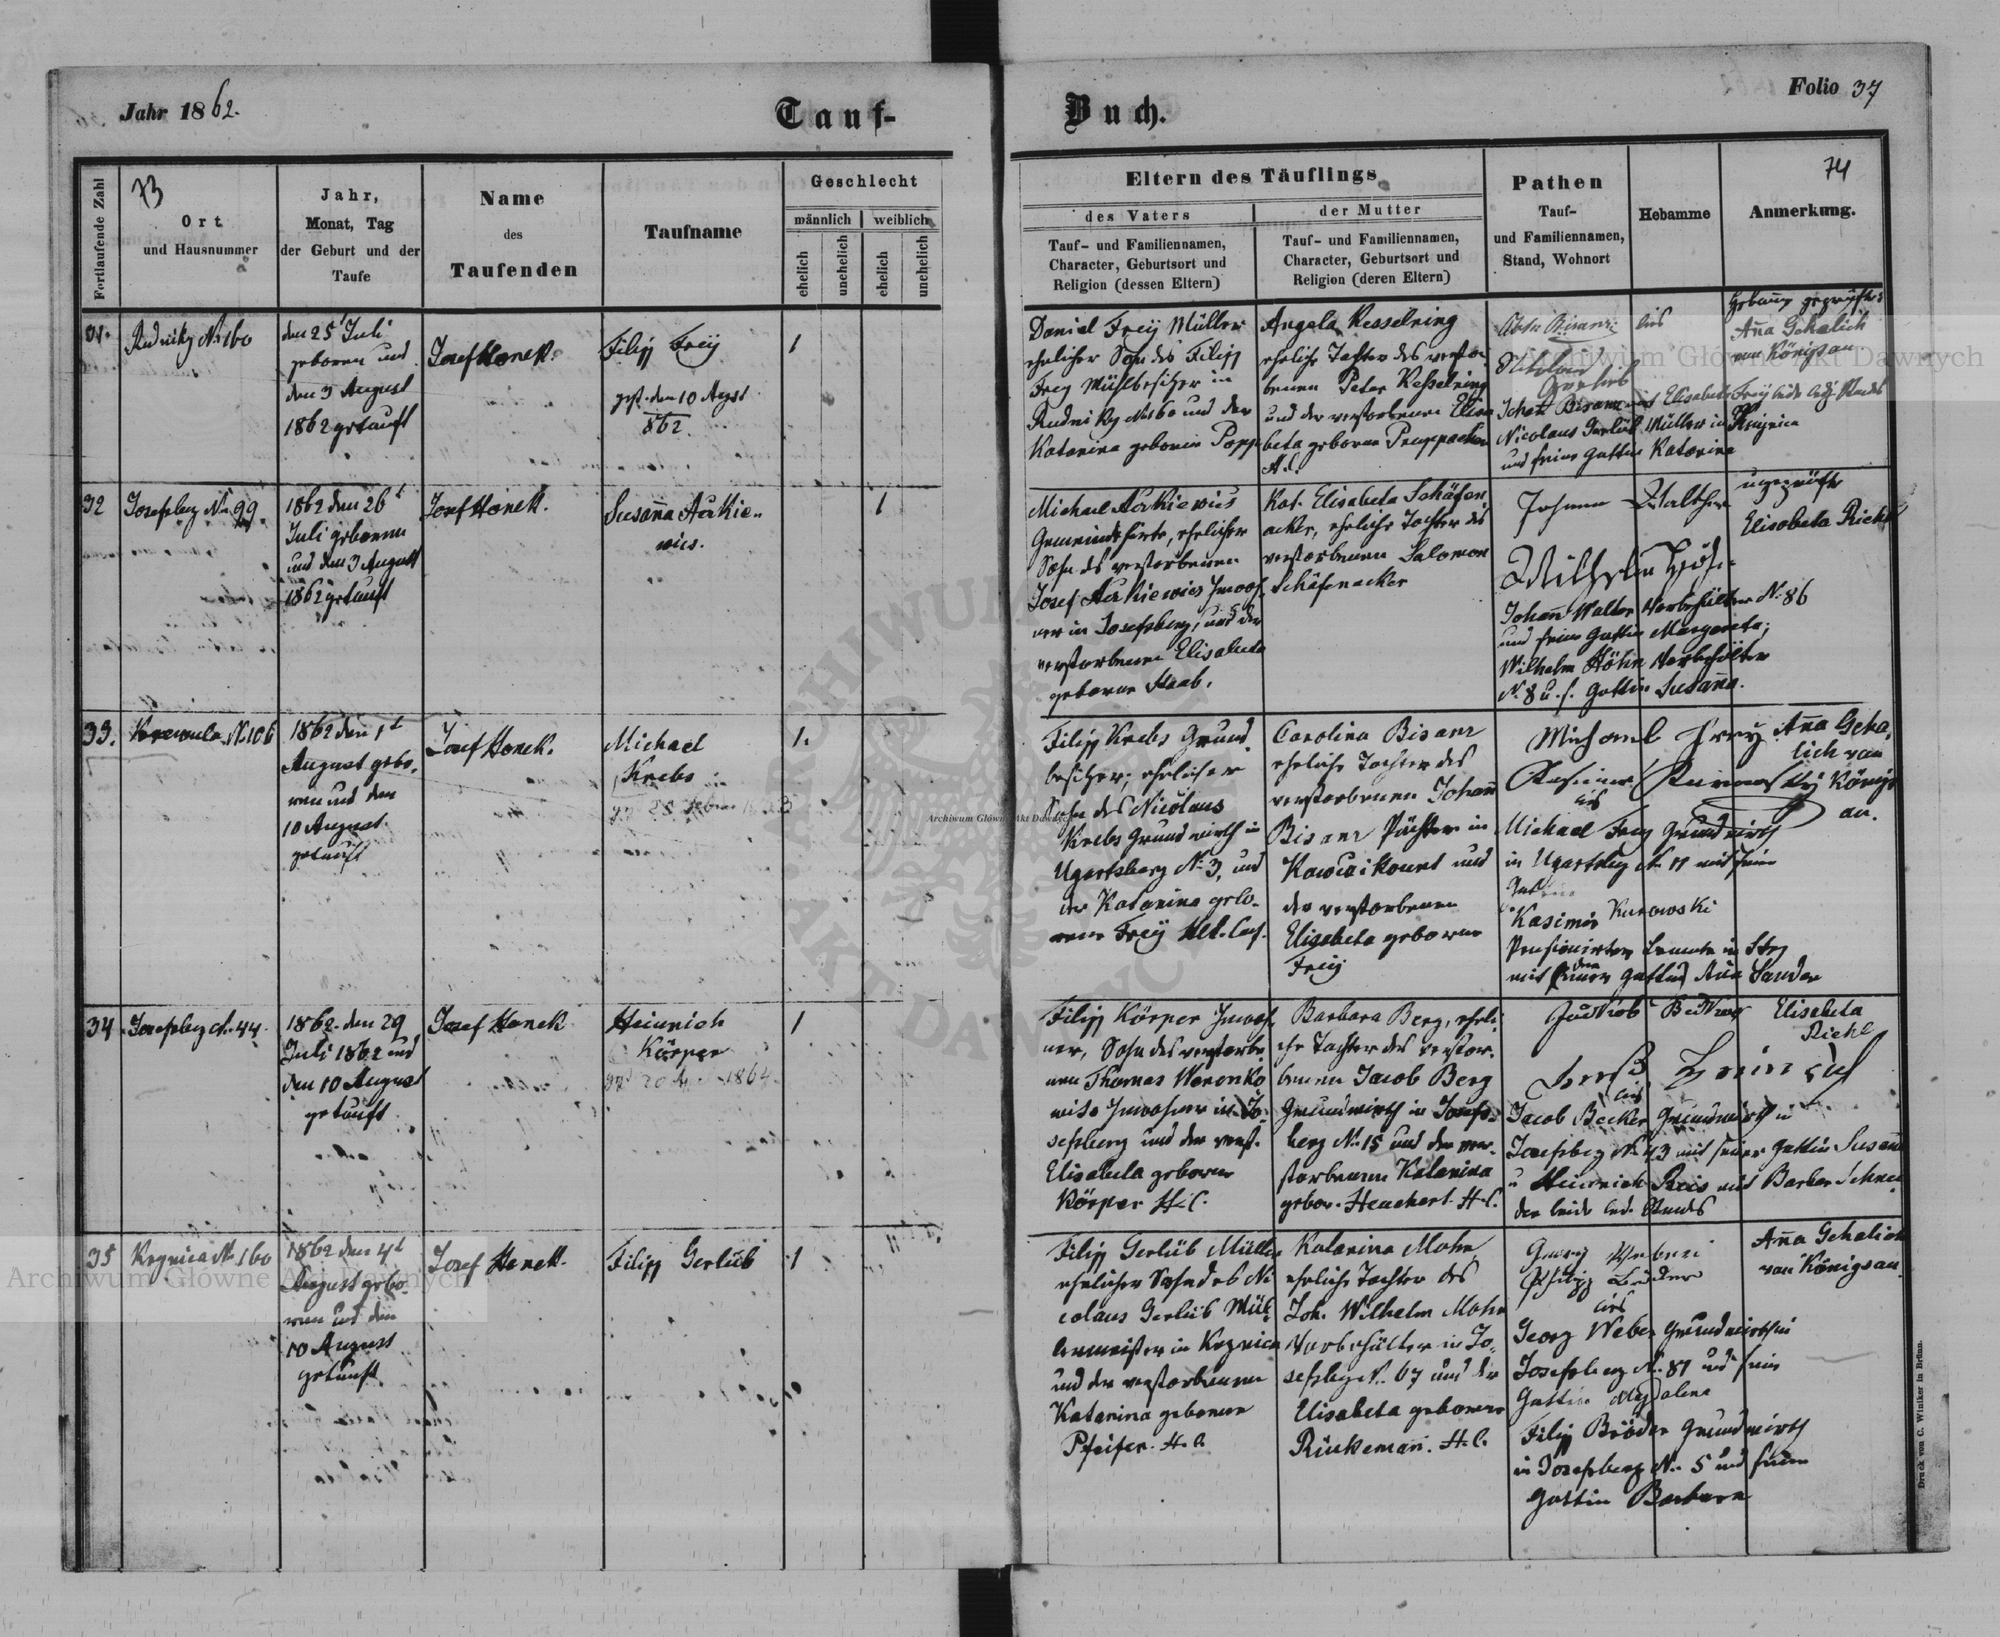 Jahr 1862.
Tauf-
Buch.
Folio 37
Fortlaufende Zahl
73
Ort
und Hausnummer
Jahr,
Monat, Tag
der Geburt und der
Taufe
Name
des
Taufenden
Taufname
Geschlecht
männlich
weiblich
ehelich
unehelich
ehelich
unehelich
Eltern des Täuflings
des Vaters
Tauf- und Familiennamen,
Character, Geburtsort und
Religion (dessen Eltern)
der Mutter
Tauf- und Familiennamen,
Character, Geburtsort und
Religion (deren Eltern)
Pathen
Tauf-
und Familiennamen,
Stand, Wohnort
Hebamme
74
Anmerkung.
31.
Rudniky No 160
den 25t Juli
geboren und
den 3 August
1862 getauft
Josef Honek.
Filipp Freÿ
gest. den 10 Augst
862
1
Daniel Freÿ Müller
ehelicher Sohn des Filipp
Frey Mühlbesitzer in
Rudniky No 160 und der
Katarina geboren Popp
Angela Kesselring
eheliche Tochter des verstor
benen Peter Kesselring
und der verstorbenen Elisa
beta geborne
Bisanz
Nicolaus Gerlüb Müller in
und seine Gattin Katarina
Anna Gehalich
von Königsau
32
Josefsberg No 99
1862 den 26t
Juli geboren
und den 3 August
1862 getauft
Josef Honek.
Susanna Aerkie-
wics.
1
Michael Aerkiewics
Gemeindehirte, ehelicher
Sohn des verstorbenen
Josef Aerkiewics Inwoh
ner in Josefsberg, und der
verstorbenen Elisabeta
geborne Staab.
Kat. Elisabeta Schäfen
acker, eheliche Tochter des
verstorbenen Salomon
Schäfenacker
Johann Walther
Wilhelm Höhn
Johann Walter Vorbehälter No 86
und seine Gattin Margareta;
Wilhelm Höhn Vorbehälter
No 8 u. s. Gattin Susanna.
ungeprüfte
Elisabeta Riehl
33.
No 106
1862 den 1t
August gebo-
ren und den
10 August
getauft
Josef Honek.
Michael
Krebs
1.
Filipp Krebs Grund
besitzer, ehelicher
Sohn des Nicolaus
Krebs Grundwirth in
Ugartsberg No 3, und
der Katarina gebo-
rene Freÿ
Carolina Bisanz
eheliche Tochter des
verstorbenen Johann
Bisanz Pächter in
und
der verstorbenen
Elisabeta geborne
Freÿ
Michael Frey
Michael Frey Grundwirth
in Ugartsberg No 11 mit seiner
Kasimir Kurowski
Pensionirter Beamte in Stry
Anna Sander
Anna Geha
lich von
Königs
au.
34
Josefsberg No 44.
1862 den 29
Juli 1862 und
den 10 August
getauft
Josef Honek
Heinrich
Körper
1864
1
Filipp Körper Inwoh
ner, Sohn des verstorbe
nen Thomas Woronko
Inwohner in Jo-
sefsberg und der verst.
Elisabeta geboren
Körper H.C.
Barbara Berg, eheli
che Tochter des verstor
benen Jacob Berg
Grundwirth in Josefs-
berg No 15 und der ver-
storbenen Katarina
gebor. Henckert H.C.
Jacob Becker Grundwirth in
Josefsberg No 43 mit seiner Gattin Susanna
u Heinrich Reis mit Barbar Schnei
der beide led. Stands
Elisabeta
Riehl
35
No 160
1862 den 4t
August gebo
ren und den
10 August
getauft
Josef Honek.
Filipp Gerlüb
1
Filipp Gerlüb Müller
ehelicher Sohn des Ni
colaus Gerlüb Mül
lermeister in
und der verstorbenen
Katarina geborene
Pfeifer. H.C.
Katarina Mohr
eheliche Tochter des
Joh. Wilhelm Mohr
Vorbehälter in Jo
sefsberg No 67 und der
Elisabeta geborene
Rinkemann. H.C.
Georg Weber Grundwirth in
Josefsberg No 81 und seine
Gattin Magdalena
Filipp Bröder Grundwirth
in Josefsberg No 5 und seine
Gattin Barbara
Anna Gehalich
von Königsau
Druck von C. Winiker in Brünn.
Archiwum Główne Akt Dawnych
Archiwum Główne Akt Dawnych
Archiwum Główne Akt Dawnych